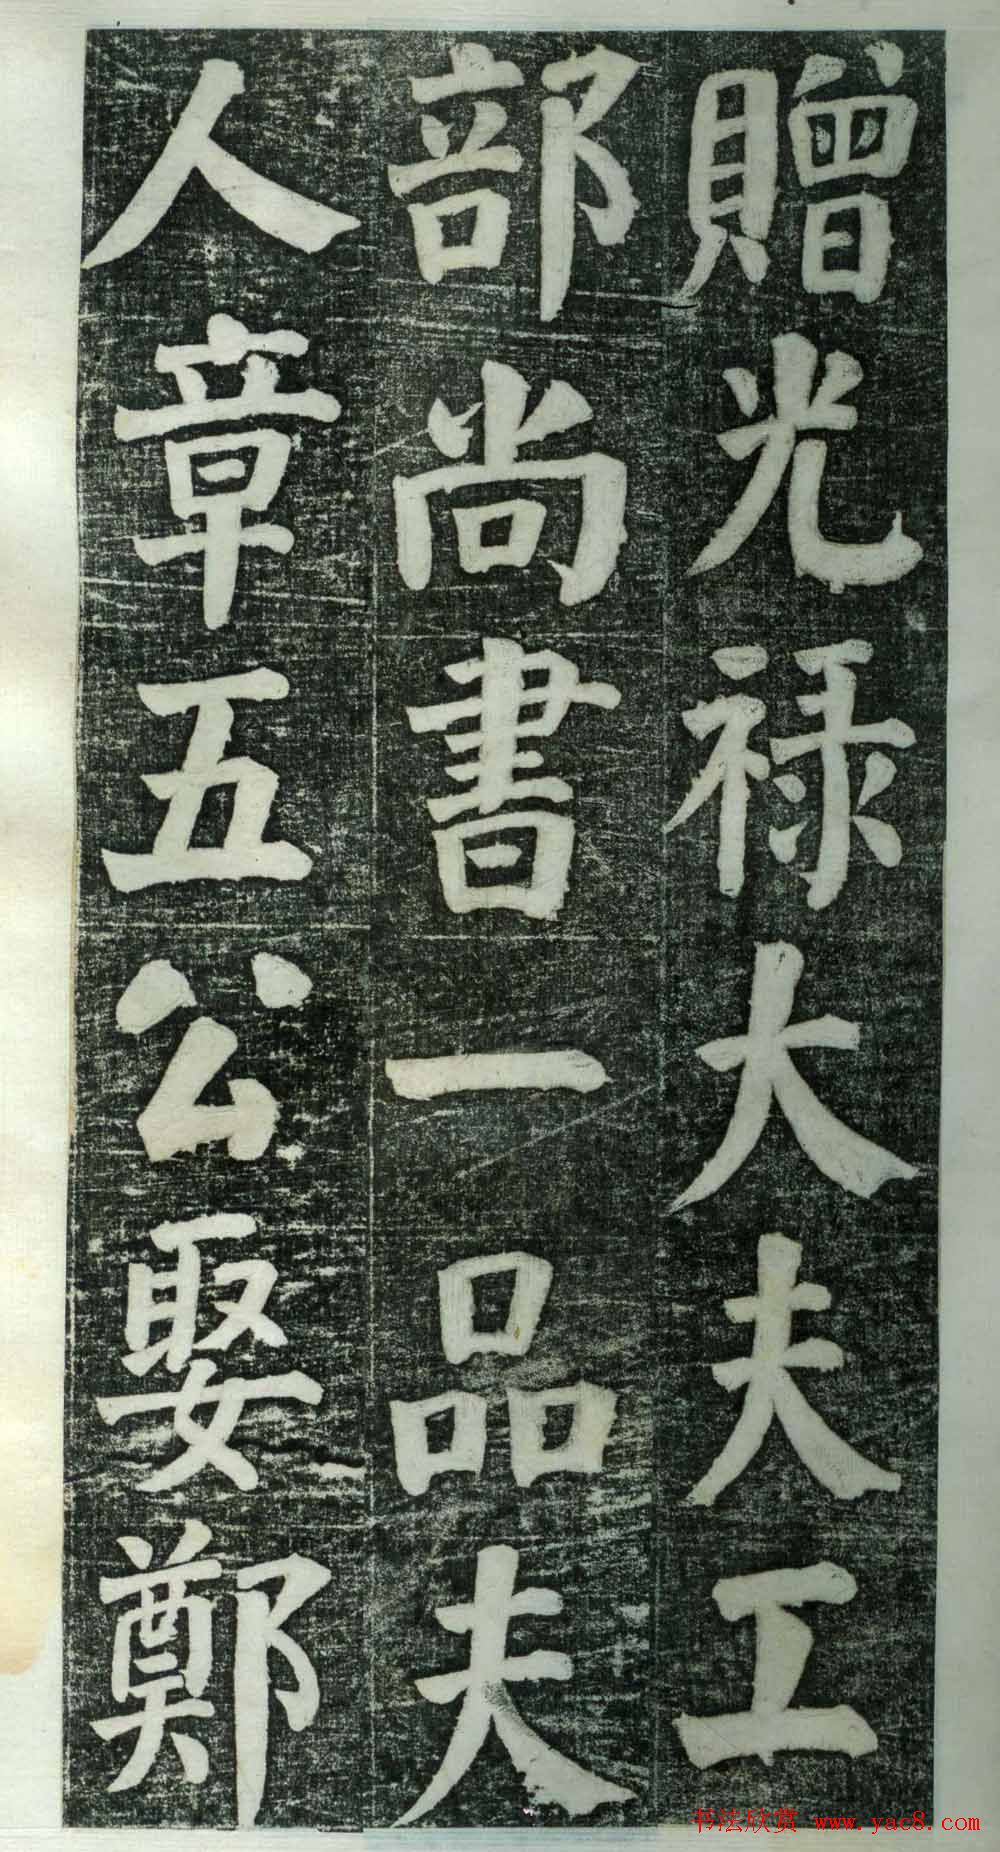 贈光禄大夫工
部尚書一品夫
人章五公娶鄭
书法欣赏 www.yac8.com